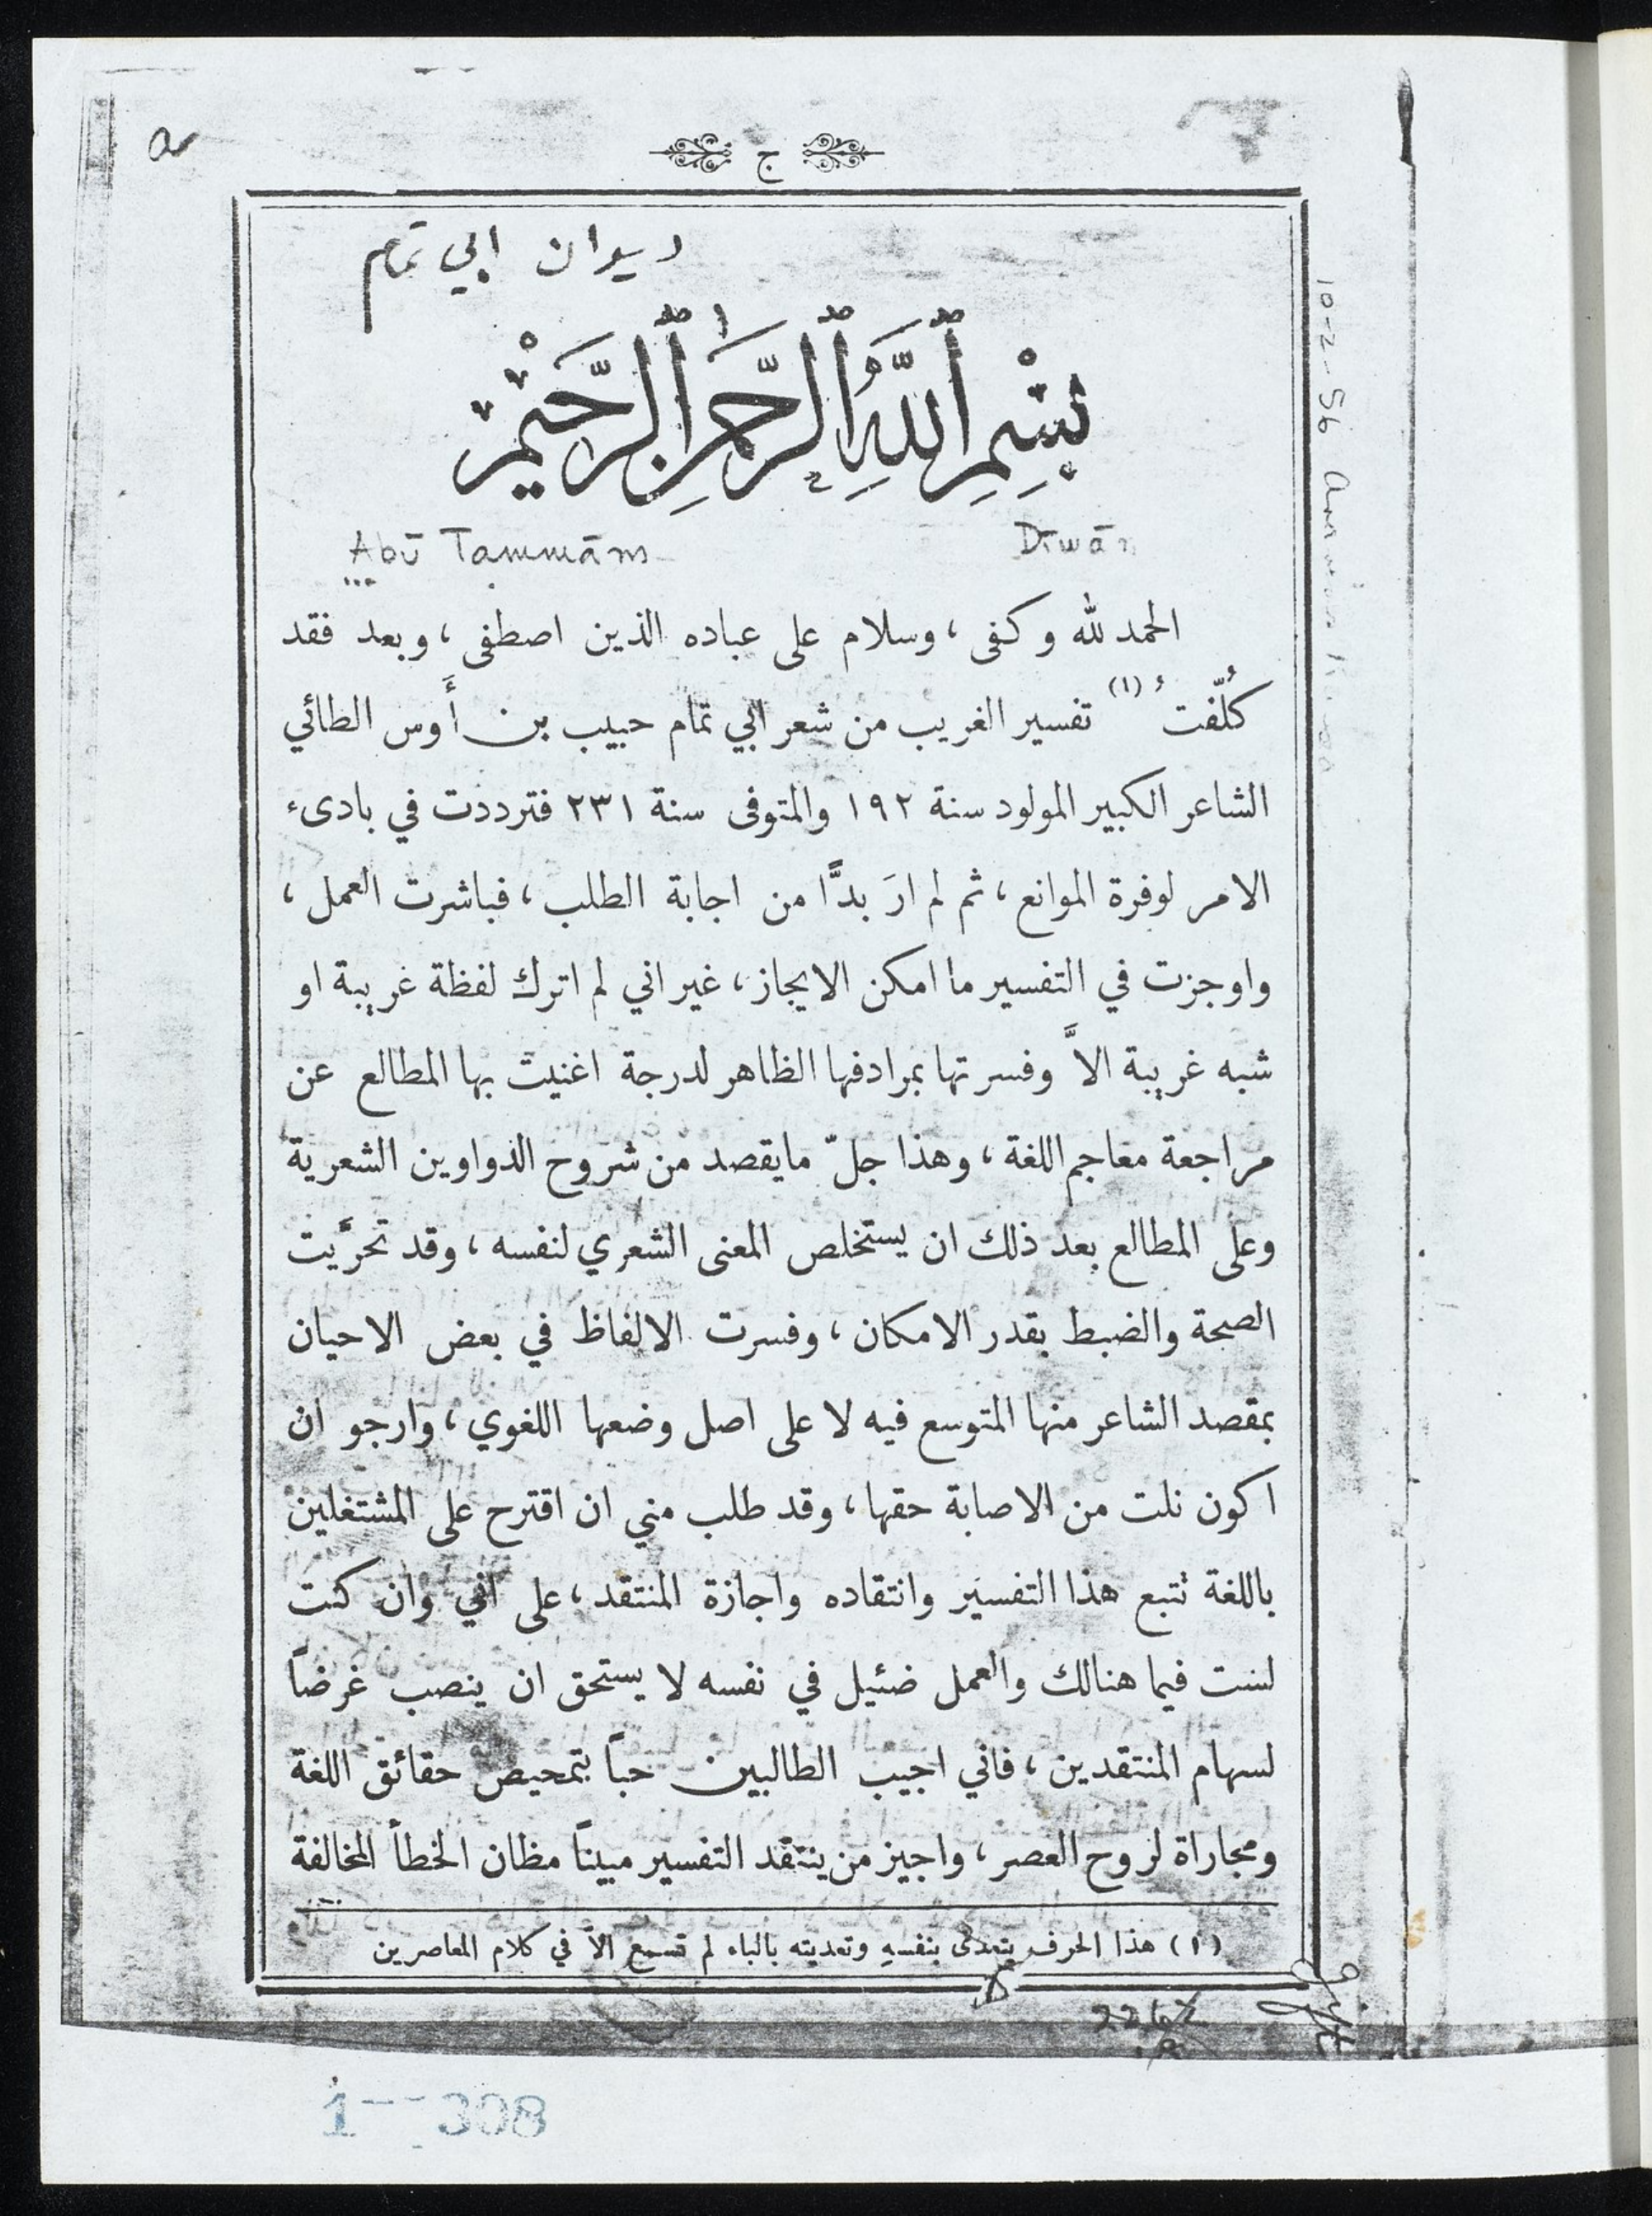 ج
ديوان ابي تمام
بِسْمِ ٱللَّهِ ٱلرَّحْمَٰنِ ٱلرَّحِيْمِ
Abū Tammām Dīwān
الحمد لله وكفى ، وسلام على عباده الذين اصطفى ، وبعد فقد
كُلّفتُ (١) تفسير الغريب من شعر ابي تمام حبيب بن أَوس الطائي
الشاعر الكبير المولود سنة ١٩٢ والمتوفى سنة ٢٣١ فترددت في بادىء
الامر لوفرة الموانع ، ثم لم ارَ بدًّا من اجابة الطلب ، فباشرت العمل ،
واوجزت في التفسير ما امكن الايجاز ، غير اني لم اترك لفظة غريبة او
شبه غريبة الاَّ وفسرتها بمرادفها الظاهر لدرجة اغنيت بها المطالع عن
مراجعة معاجم اللغة ، وهذا جلّ مايقصد من شروح الدواوين الشعرية
وعلى المطالع بعد ذلك ان يستخلص المعنى الشعري لنفسه ، وقد تحرَّيت
الصحة والضبط بقدر الامكان ، وفسرت الالفاظ في بعض الاحيان
بمقصد الشاعر منها المتوسع فيه لا على اصل وضعها اللغوي ، وارجو ان
اكون نلت من الاصابة حقها ، وقد طلب مني ان اقترح على المشتغلين
باللغة تتبع هذا التفسير وانتقاده واجازة المنتقد ، على اني وان كنت
لست فيما هنالك والعمل ضئيل في نفسه لا يستحق ان ينصب غرضاً
لسهام المنتقدين ، فاني اجيب الطالبين حباً بتمحيص حقائق اللغة
ومجاراة لروح العصر ، واجيز من ينتقد التفسير مبيناً مظان الخطأ المخالفة
(١) هذا الحرف يتعدى بنفسهِ وتعديته بالباء لم تسمع الاَّ في كلام المعاصرين
10-2-56
1 - 308